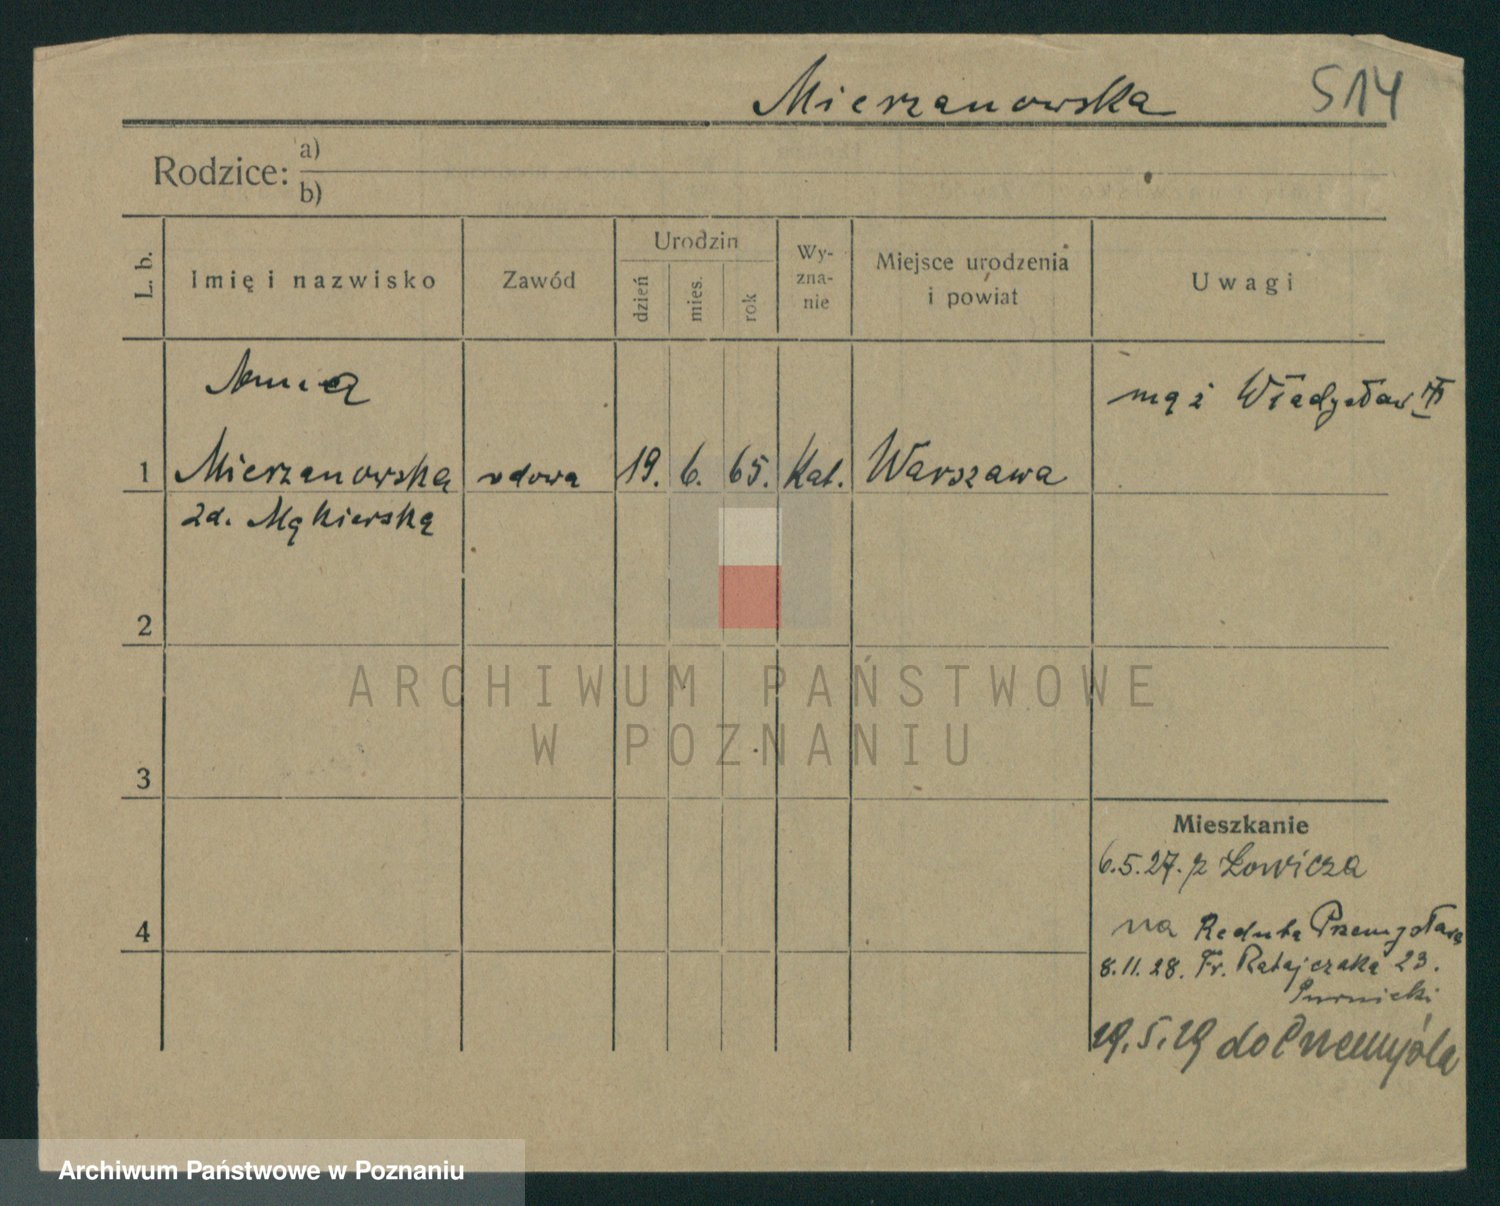 Mierzanowska
514
Rodzice:
a)
b)
L. b.
Imię i nazwisko
Zawód
Urodzin
dzień
mies.
rok
Wy-
zna-
nie
Miejsce urodzenia
i powiat
Uwagi
mąż Władysław
1 Mierzanowska wdowa 19. 6. 65. Kat. Warszawa
zd.
2
3
4
Mieszkanie
6.5.27. z Łowicza
na Reduta Przemysława
8.11.28. Fr. Ratajczaka 23.
do Przemyśla
ARCHIWUM PAŃSTWOWE
W POZNANIU
Archiwum Państwowe w Poznaniu